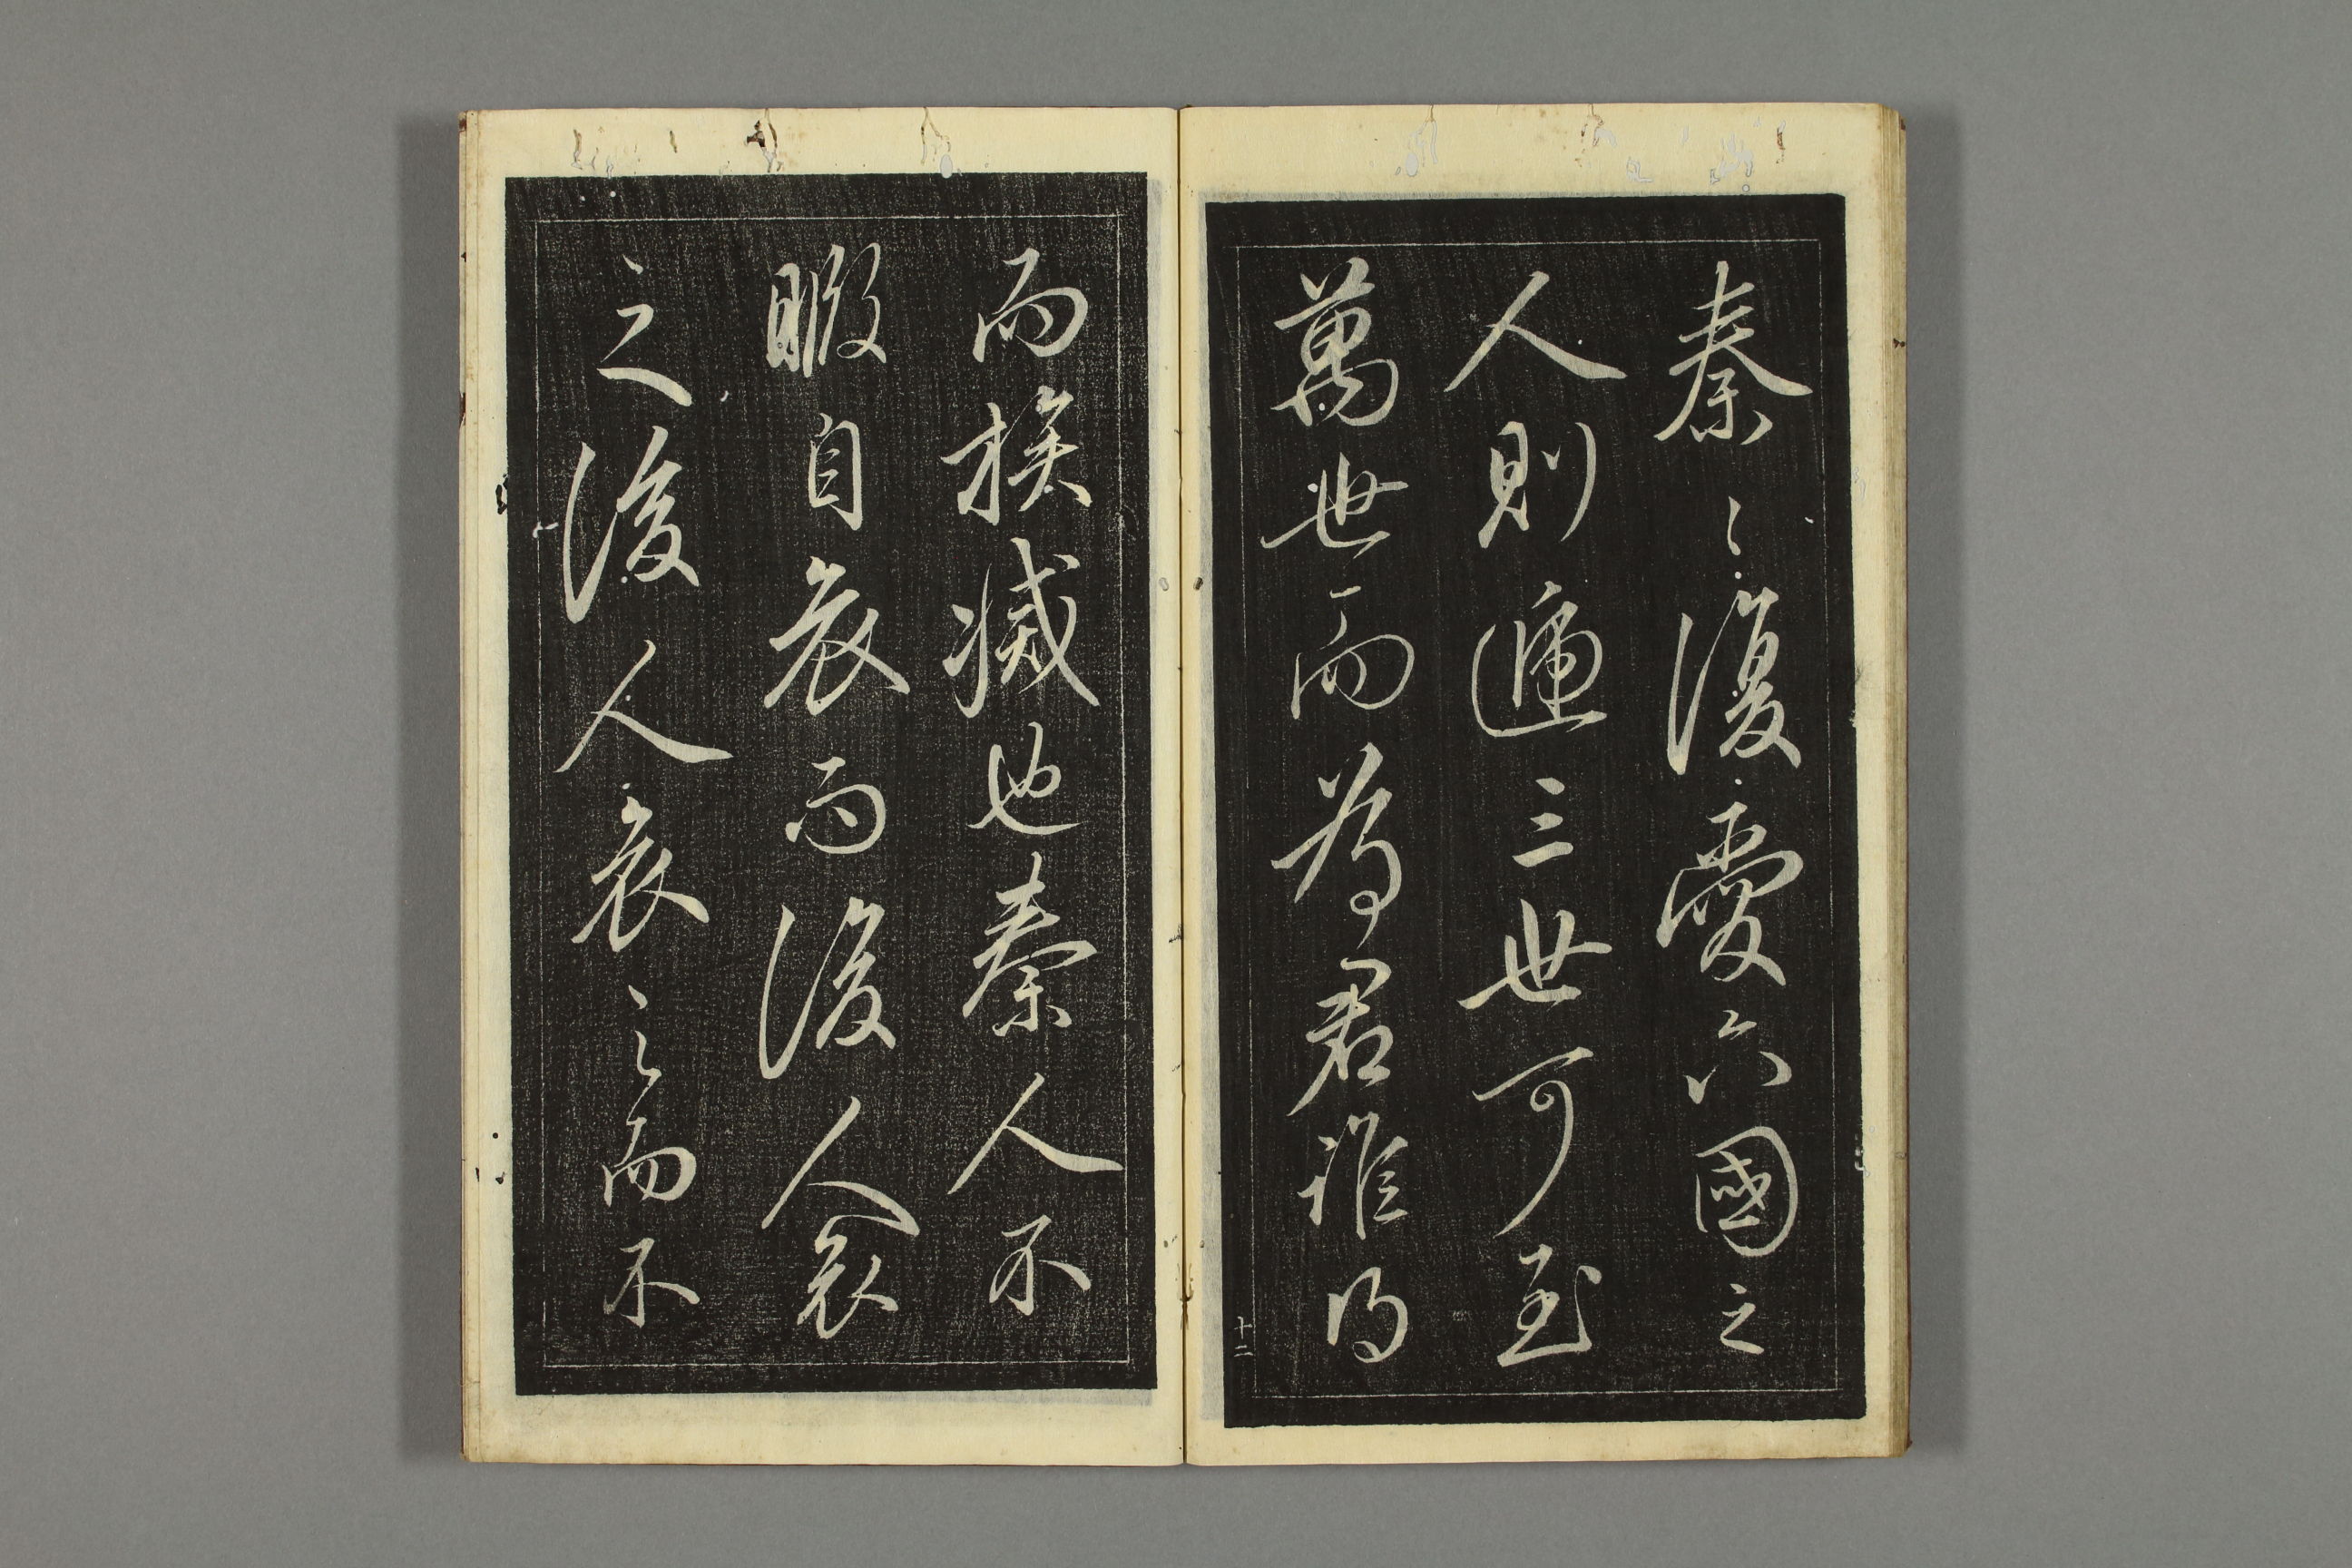 秦〻復愛六國之
人則遞三世可至
萬世而為君誰得
十二
而族滅也秦人不
暇自哀而後人哀
之後人哀之而不